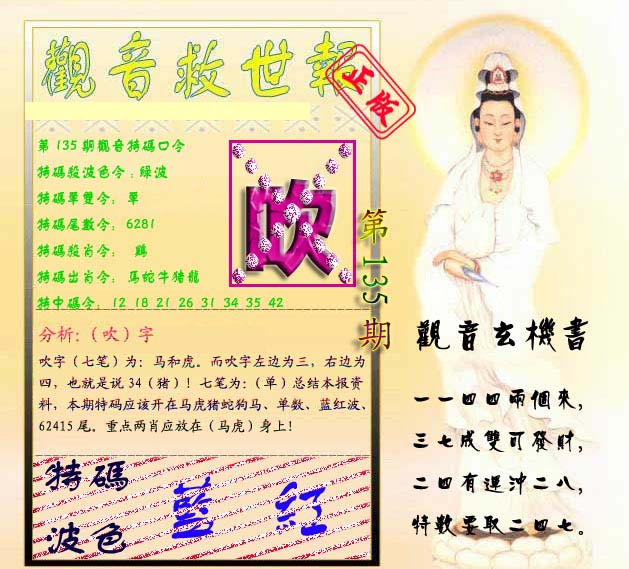 觀音救世報
正版
第135期觀音特碼口令
特碼殺波色令:綠波
特碼單雙令: 單
特碼尾數令: 6281
特碼殺肖令: 鷄
特碼出肖令: 馬蛇牛猪龍
特中碼令: 12 18 21 26 31 34 35 42
吹
第135期
分析:(吹)字
吹字(七笔)为: 马和虎。而吹字左边为三, 右边为
四, 也就是说34(猪)! 七笔为:(单)总结本报资
料, 本期特码应该开在马虎猪蛇狗马、单数、蓝红波、
62415尾。重点两肖应放在(马虎)身上!
特碼
波色
藍 紅
觀音玄機書
一一四四兩個來,
三七成雙可發財,
二四有運沖二八,
特數要取二四七。